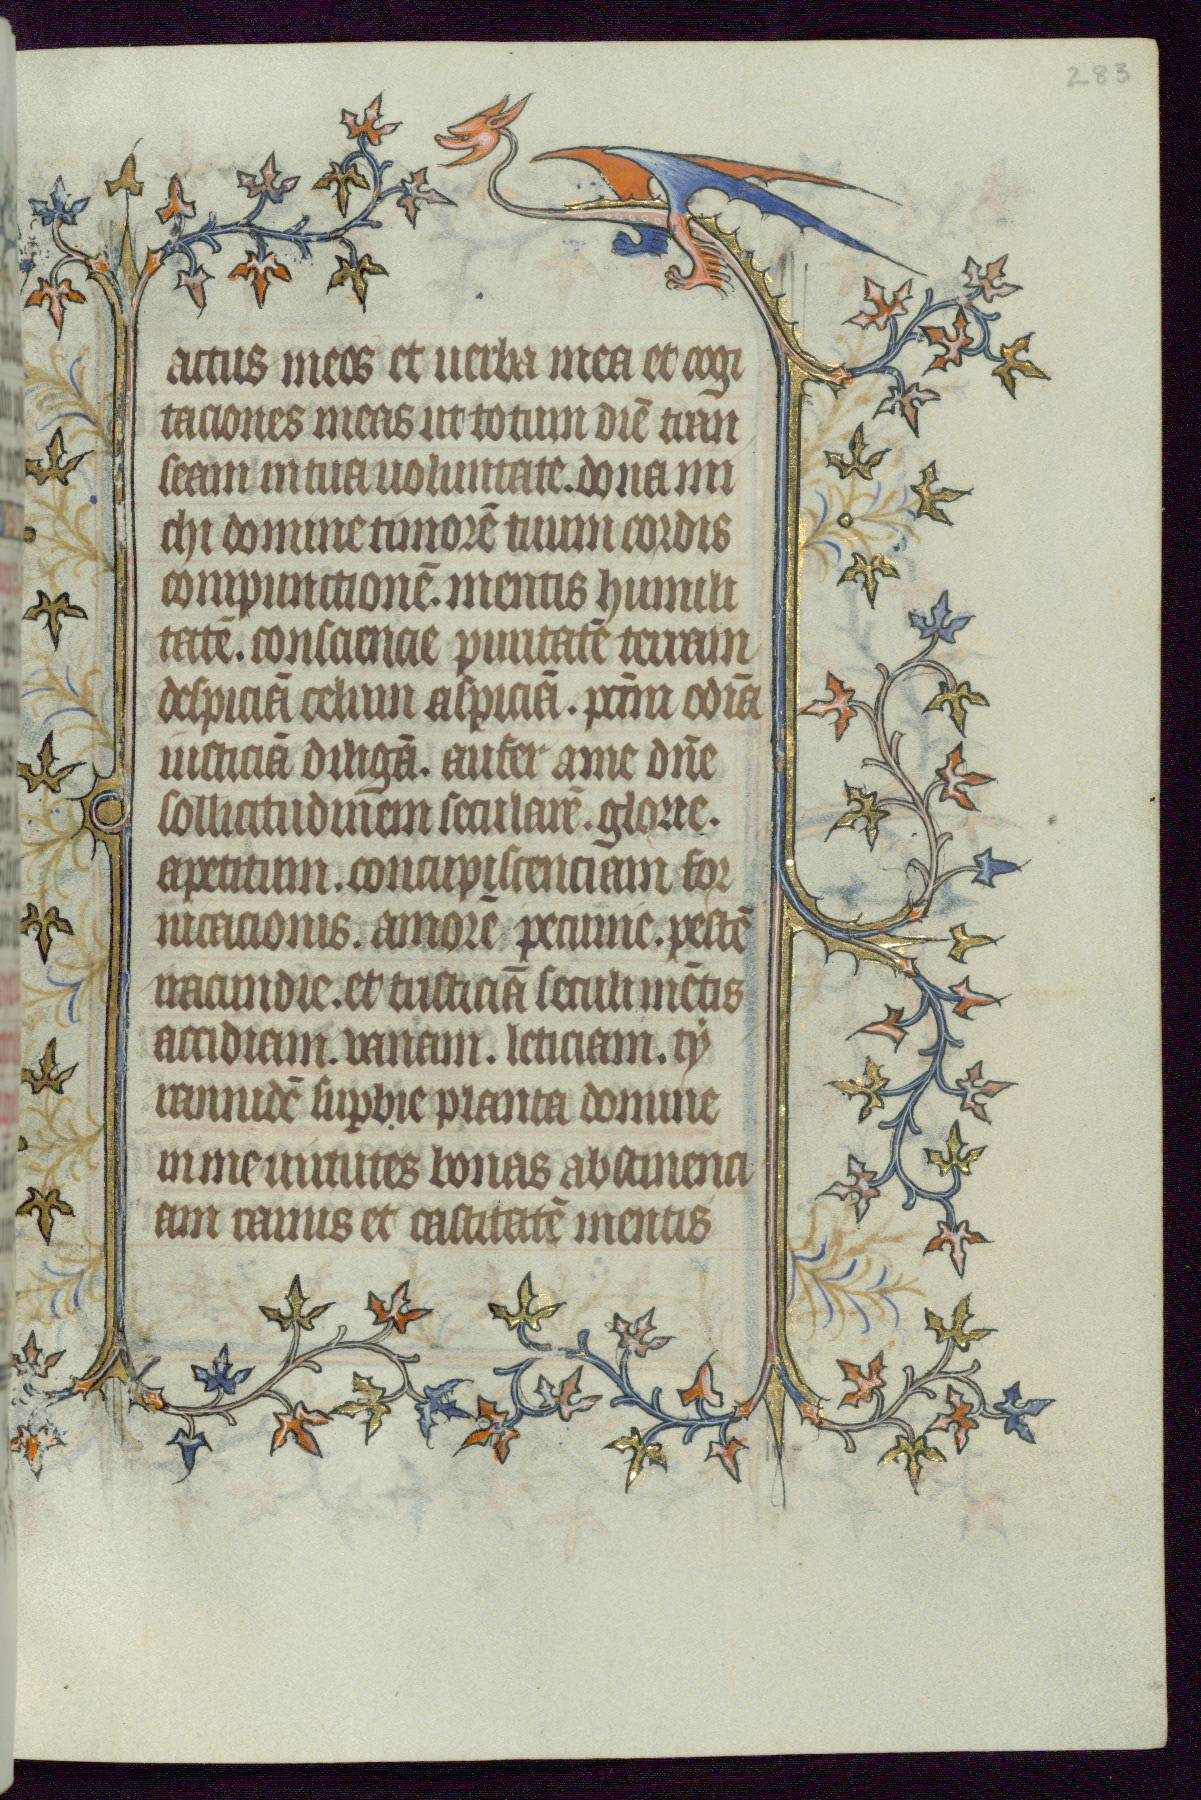 283
actus meos et uerba mea et cogi
taciones meas ut totum diē tran
seam in tua uoluntate. dona mi
chi domine timorē tuum cordis
compunctionē. mentis humili
tatē. consciencie puritatē terram
despiciā celum aspiciā. pctm̄ odiā
iusticiā diligā. aufer a me dn̄e
sollicitudinem secularē. glorie.
apetitum. concupiscenciam for
nicacionis. amorē pecunie. pestē
iracundie. et tristiciā seculi mētis
accidiam. vanam. leticiam. ty
rannidē supbie planta domine
in me uirtutes bonas abstinenci
am carnis et castitatē mentis